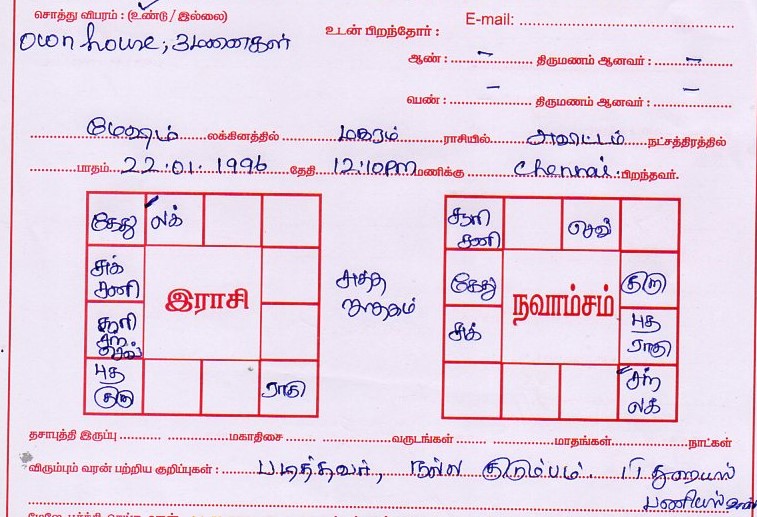 சொத்து விபரம் : (உண்டு / இல்லை)
E-mail:
own house; 3 மனைகள்
உடன் பிறந்தோர் :
ஆண் : – திருமணம் ஆனவர் : –
பெண் : – திருமணம் ஆனவர் : –
மேஷம் லக்கினத்தில் மகரம் ராசியில் அவிட்டம் நட்சத்திரத்தில்
பாதம் 22.01.1996 தேதி 12:10PM மணிக்கு Chennai பிறந்தவர்.
கேது லக்
சுக் சனி
சூரி சந் செவ்
புத குரு
ராகு
இராசி
சுத்த ஜாதகம்
சூரி சனி
செவ்
கேது
குரு
சுக்
புத ராகு
சந் லக்
நவாம்சம்
தசாபுத்தி இருப்பு மகாதிசை வருடங்கள் மாதங்கள் நாட்கள்
விரும்பும் வரன் பற்றிய குறிப்புகள் : படித்தவர், நல்ல குடும்பம். IT துறையில்